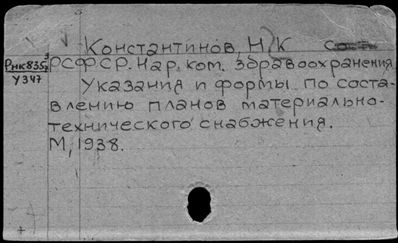 Константинов, Н К
РНК835
У347
РСФСР. Нар. ком. здравоохранения
Указания и формы по соста-
влению планов материально-
технического снабжения.
М, 1938.